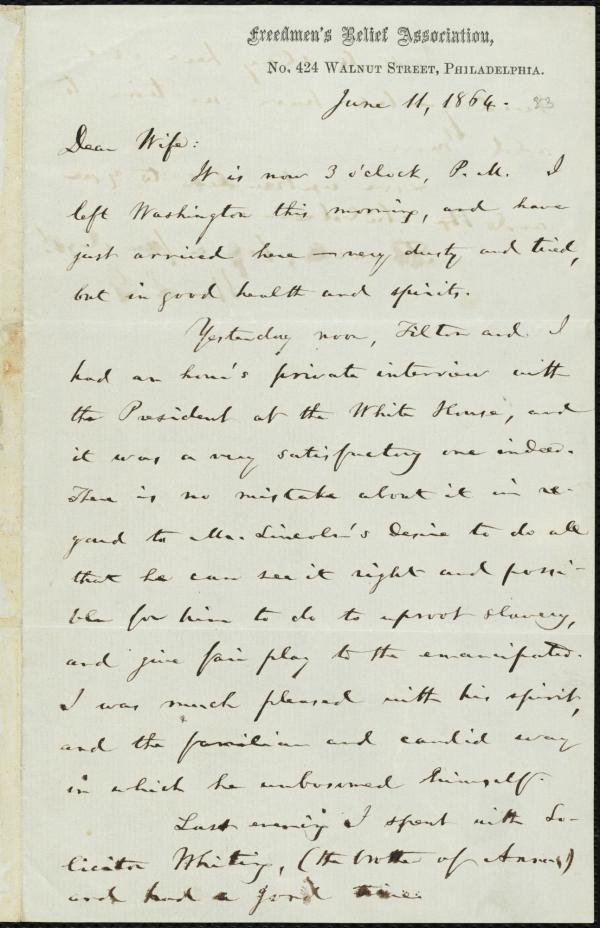 Freedmen's Relief Association,
No. 424 Walnut Street, Philadelphia.
June 11, 1864. 83
Dear Wife:
It is now 3 o'clock, P. M. I
left Washington this morning, and have
just arrived here — very dusty and tired,
but in good health and spirits.
Yesterday noon, Tilton and I
had an hour's private interview with
the President at the White House, and
it was a very satisfactory one indeed.
There is no mistake about it in re-
gard to Mr. Lincoln's desire to do all
that he can see it right and possi-
ble for him to do to uproot slavery,
and give fair play to the emancipated.
I was much pleased with his spirit,
and the familiar and candid way
in which he unbosomed himself.
Last evening I spent with So-
licitor Whiting, (the brother of Anna,)
and had a good time.